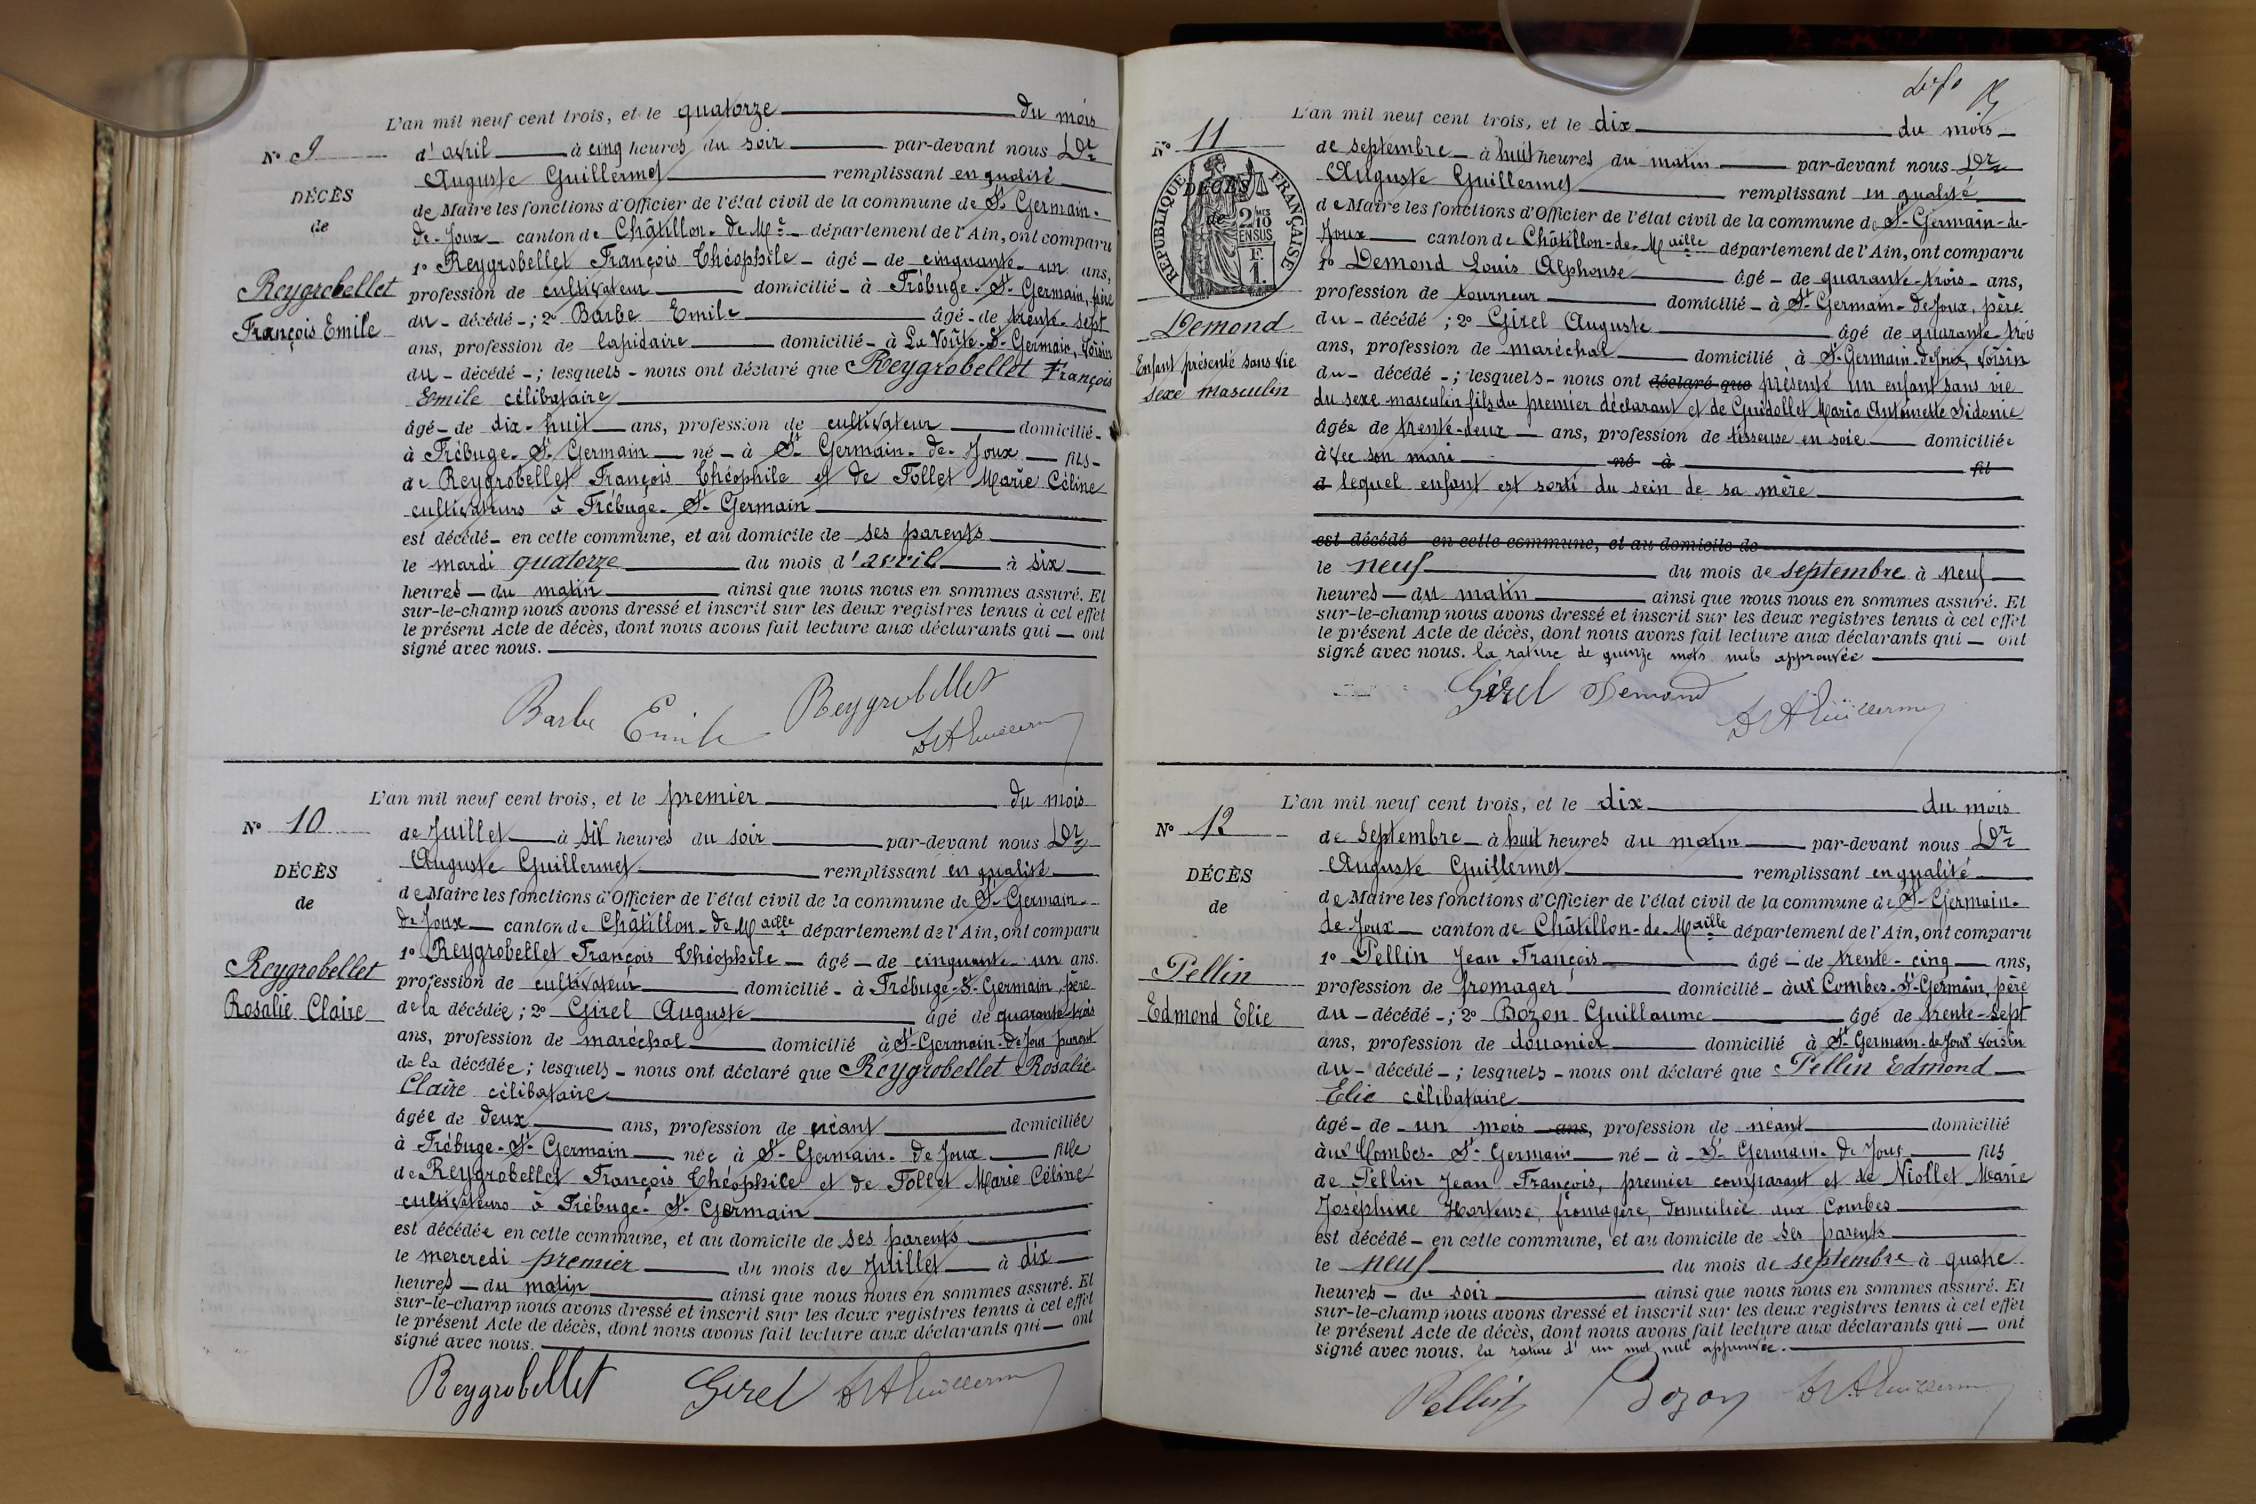 L'an mil neuf cent trois, et le quatorze du mois
No 9
d'avril à cinq heures du soir par-devant nous Dr
Auguste Guillermet remplissant en qualité
DÉCÈS
de Maire les fonctions d'Officier de l'état civil de la commune de St Germain-
de
de-Joux canton de Châtillon-de-Mle département de l'Ain, ont comparu
1o Reygrobellet François Théophile âgé de cinquante-un ans,
Reygrobellet
profession de cultivateur domicilié à Trébuge-St-Germain, père
François Emile
du décédé; 2o Barbe Emile âgé de trente-sept
ans, profession de lapidaire domicilié à La Voûte-St-Germain, voisin
du décédé; lesquels nous ont déclaré que Reygrobellet François
Emile célibataire
âgé de dix-huit ans, profession de cultivateur domicilié
à Trébuge-St-Germain né à St Germain-de-Joux fils
de Reygrobellet François Théophile et de Follet Marie Céline
cultivateurs à Trébuge-St-Germain
est décédé en cette commune, et au domicile de ses parents
le mardi quatorze du mois d'avril à six
heures du matin ainsi que nous nous en sommes assuré. Et
sur-le-champ nous avons dressé et inscrit sur les deux registres tenus à cet effet
le présent Acte de décès, dont nous avons fait lecture aux déclarants qui ont
signé avec nous.
Barbe Emile Reygrobellet
Dr A Guillermet
L'an mil neuf cent trois, et le premier du mois
No 10
de Juillet à six heures du soir par-devant nous Dr
Auguste Guillermet remplissant en qualité
DÉCÈS
de Maire les fonctions d'Officier de l'état civil de la commune de St-Germain-
de
de Joux canton de Châtillon-de-Maille département de l'Ain, ont comparu
1o Reygrobellet François Théophile âgé de cinquante-un ans.
Reygrobellet
profession de cultivateur domicilié à Trébuge-St-Germain, père
Rosalie Claire
de la décédée; 2o Girel Auguste âgé de quarante-trois
ans, profession de maréchal domicilié à St-Germain-de Joux parent
de la décédée; lesquels nous ont déclaré que Reygrobellet Rosalie
Claire célibataire
âgée de deux ans, profession de néant domiciliée
à Trébuge-St-Germain née à St-Germain-de Joux fille
de Reygrobellet François Théophile et de Follet Marie Céline
cultivateurs à Trébuge-St-Germain
est décédée en cette commune, et au domicile de ses parents
le mercredi premier du mois de Juillet à dix
heures du matin ainsi que nous nous en sommes assuré. Et
sur-le-champ nous avons dressé et inscrit sur les deux registres tenus à cet effet
le présent Acte de décès, dont nous avons fait lecture aux déclarants qui ont
signé avec nous.
Reygrobellet Girel Dr A Guillermet
L'an mil neuf cent trois, et le dix du mois
No 11
de septembre à huit heures du matin par-devant nous Dr
Auguste Guillermet remplissant en qualité
RÉPUBLIQUE FRANÇAISE
DÉCÈS
de
2 MES
10
EN SUS
F.
1
de Maire les fonctions d'Officier de l'état civil de la commune de St-Germain-de-
Joux canton de Châtillon-de-Maille département de l'Ain, ont comparu
1o Demond Louis Alphonse âgé de quarante-trois ans,
profession de tourneur domicilié à St-Germain-de Joux, père
Demond
du décédé; 2o Girel Auguste âgé de quarante-trois
Enfant présenté sans vie
ans, profession de maréchal domicilié à St-Germain-de Joux, voisin
sexe masculin
du décédé; lesquels nous ont déclaré que présenté un enfant sans vie
du sexe masculin fils du premier déclarant et de Guidollet Marie Antoinette Sidonie
âgée de trente-deux ans, profession de tisseuse en soie domiciliée
avec son mari né à fil
d lequel enfant est sorti du sein de sa mère
est décédé en cette commune, et au domicile de
le neuf du mois de septembre à neuf
heures du matin ainsi que nous nous en sommes assuré. Et
sur-le-champ nous avons dressé et inscrit sur les deux registres tenus à cet effet
le présent Acte de décès, dont nous avons fait lecture aux déclarants qui ont
signé avec nous. la rature de quinze mots nuls approuvée
Girel Demond Dr A Guillermet
L'an mil neuf cent trois, et le dix du mois
No 12
de septembre à huit heures du matin par-devant nous Dr
Auguste Guillermet remplissant en qualité
DÉCÈS
de Maire les fonctions d'Officier de l'état civil de la commune de St-Germain-
de
de Joux canton de Châtillon-de-Maille département de l'Ain, ont comparu
1o Pellin Jean François âgé de trente-cinq ans,
Pellin
profession de fromager domicilié aux Combes-St-Germain, père
Edmond Elie
du décédé; 2o Bozon Guillaume âgé de trente-sept
ans, profession de douanier domicilié à St-Germain-de Joux voisin
du décédé; lesquels nous ont déclaré que Pellin Edmond
Elie célibataire
âgé de un mois ans, profession de néant domicilié
aux Combes-St-Germain né à St-Germain-de Joux fils
de Pellin Jean François, premier comparant et de Niollet Marie
Joséphine Hortense, fromagère, domiciliée aux Combes
est décédé en cette commune, et au domicile de ses parents
le neuf du mois de septembre à quatre
heures du soir ainsi que nous nous en sommes assuré. Et
sur-le-champ nous avons dressé et inscrit sur les deux registres tenus à cet effet
le présent Acte de décès, dont nous avons fait lecture aux déclarants qui ont
signé avec nous. la rature d'un mot nul approuvée.
Pellin Bozon Dr A Guillermet